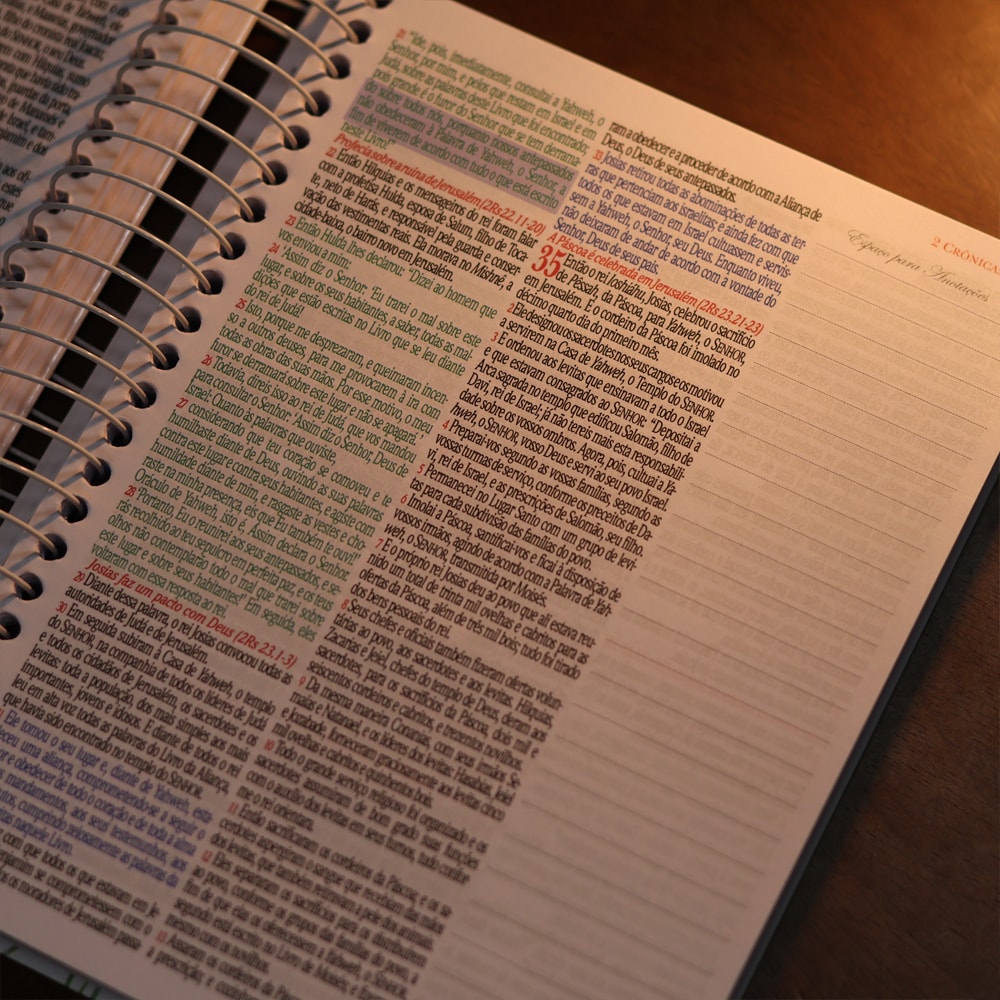 21 "Ide, pois, imediatamente, consultai a Yahweh, o
Senhor, por mim, e pelos que restam em Israel e em
Judá, sobre as palavras deste Livro que foi encontrado;
pois grande é o furor do Senhor que se tem derrama-
do sobre todos nós, porquanto nossos antepassados
não obedeceram à Palavra de Yahweh, o Senhor, a
fim de viverem de acordo com tudo o que está escrito
neste Livro!"
Profecia sobre a ruína de Jerusalém (2Rs 22.11-20)
22 Então Hilquias e os mensageiros do rei foram falar
com a profetisa Hulda, esposa de Salum, filho de Toca-
te, neto de Harás, e responsável pela guarda e conser-
vação das vestimentas reais. Ela morava no Mishnê, a
cidade-baixa, o bairro novo em Jerusalém.
23 Então Hulda lhes declarou: "Dizei ao homem que
vos enviou a mim:
24 Assim diz o Senhor: 'Eu trarei o mal sobre este
lugar, e sobre os seus habitantes, a saber, todas as mal-
dições que estão escritas no Livro que se leu diante
do rei de Judá!
25 Isto, porque me desprezaram, e queimaram incen-
so a outros deuses, para me provocarem à ira com
todas as obras das suas mãos. Por esse motivo, o meu
furor se derramará sobre este lugar e não se apagará.'
26 Todavia, direis isso ao rei de Judá, que vos mandou
para consultar o Senhor: 'Assim diz o Senhor, Deus de
Israel: Quanto às palavras que ouviste,
27 considerando, que teu coração se comoveu e te
humilhaste diante de Deus, ouvindo as suas palavras
contra este lugar e contra seus habitantes, e agiste com
humildade diante de mim, e rasgaste as vestes e cho-
raste na minha presença, eis que Eu também te ouvi!'
Oráculo de Yahweh, Isto é, Assim declara o Senhor.
28 'Portanto, Eu o reunirei aos seus antepassados, e se-
rás recolhido ao teu sepulcro em perfeita paz, e os teus
olhos não contemplarão todo o mal que trarei sobre
este lugar e sobre seus habitantes!'" Em seguida, eles
voltaram com essa resposta ao rei.
Josias faz um pacto com Deus (2Rs 23.1-3)
29 Diante dessa palavra, o rei Josias convocou todas as
autoridades de Judá e de Jerusalém.
30 Em seguida subiram à Casa de Yahweh, o templo
do SENHOR, na companhia de todos os líderes de Judá
e todos os cidadãos de Jerusalém, os sacerdotes e os
levitas: toda a população, dos mais simples aos mais
importantes, jovens e idosos. E diante de todos o rei
leu em alta voz todas as palavras do Livro da Aliança,
que havia sido encontrado no templo do SENHOR.
Ele tomou o seu lugar e, diante de Yahweh, este-
uma aliança, comprometendo-se a seguir o
e obedecer de todo o coração e de toda a alma
mandamentos, aos seus testemunhos, aos
cumprindo zelosamente as palavras da
naquele Livro.
com que todos os que estavam em Je-
se comprometessem o
os moradores de Jerusalém passa-
ram a obedecer e a proceder de acordo com a Aliança de
Deus, o Deus de seus antepassados.
33 Josias retirou todas as abominações de todas as ter-
ras que pertenciam aos israelitas; e ainda fez com que
todos os que estavam em Israel cultuassem e servis-
sem a Yahweh, o Senhor, seu Deus. Enquanto viveu,
não deixaram de andar de acordo com a vontade do
Senhor, Deus de seus pais.
A Páscoa é celebrada em Jerusalém (2Rs 23.21-23)
35 Então o rei Joshiáhu, Josias, celebrou o sacrifício
de Pêssah, da Páscoa, para Yahweh, o SENHOR,
em Jerusalém. E o cordeiro da Páscoa foi imolado no
décimo quarto dia do primeiro mês.
2 Ele designou os sacerdotes nos seus cargos e os motivou
a servirem na Casa de Yahweh, o Templo do SENHOR.
3 E ordenou aos levitas que ensinavam a todo o Israel
e que estavam consagrados ao SENHOR: "Depositai a
Arca sagrada no templo que edificou Salomão, filho de
Davi, rei de Israel; já não tereis mais esta responsabili-
dade sobre os vossos ombros. Agora, pois, cultuai a Ya-
hweh, o SENHOR, vosso Deus e servi ao seu povo Israel.
4 Preparai-vos segundo as vossas famílias, segundo as
vossas turmas de serviço, conforme os preceitos de Da-
vi, rei de Israel, e as prescrições de Salomão, seu filho.
5 Permanecei no Lugar Santo com um grupo de levi-
tas para cada subdivisão das famílias do povo.
6 Imolai a Páscoa, santificai-vos e ficai à disposição de
vossos irmãos, agindo de acordo com a Palavra de Yah-
weh, o SENHOR, transmitida por Moisés.
7 E o próprio rei, Josias deu ao povo que ali estava reu-
nido um total de trinta mil ovelhas e cabritos para as
ofertas da Páscoa, além de três mil bois; tudo foi tirado
dos bens pessoais do rei.
8 Seus chefes e oficiais também fizeram ofertas volun-
tárias ao povo, aos sacerdotes e aos levitas. Hilquias,
Zacarias e Jeiel, chefes do templo de Deus, deram aos
sacerdotes, para os sacrifícios da Páscoa, dois mil e
seiscentos cordeiros e cabritos, e trezentos novilhos.
9 Da mesma maneira Conanias, com seus irmãos Se-
maías e Natanael, e os líderes dos levitas: Hasabias, Jeiel
e Jozabade, forneceram graciosamente aos levitas cinco
mil ovelhas e cabritos e quinhentos bois.
10 Todo o grande serviço religioso foi organizado e os
sacerdotes assumiram de bom grado suas funções
com o auxílio dos levitas em seus turnos, tudo confor-
me o rei orientara.
11 Então sacrificaram os cordeiros da Páscoa, e os sa-
cerdotes aspergiram o sangue que recebiam das mãos
dos levitas, que também retiravam a pele dos animais.
12 Eles separaram os sacrifícios para os distribuírem
ao povo, conforme os grupos das famílias do povo, a
fim de que elas os oferecessem a Yahweh, o SENHOR,
segundo está escrito no Livro de Moisés; e fizeram o
mesmo com os novilhos.
13 Assaram os cordeiros da Páscoa
a prescrição, e cozinharam
2 CRÔNICAS
Espaço para Anotações